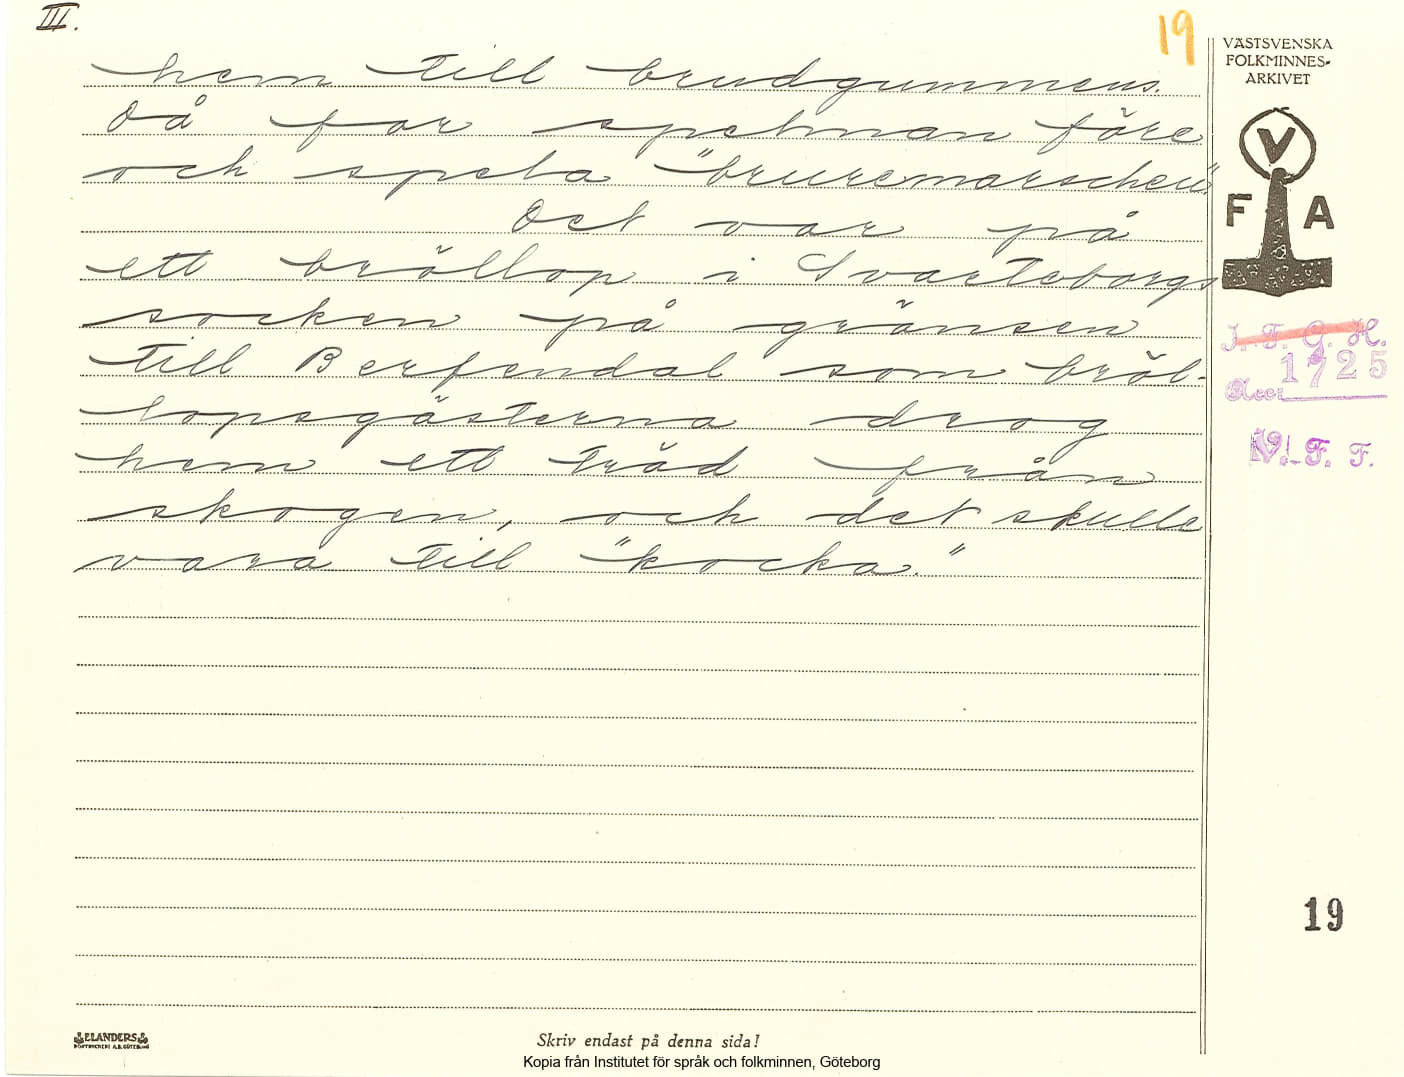 III.
19
hem till brudgummens.
Då for spelman före
och spela "bruremarschen".
Det var på
ett bröllop i Svarteborgs
socken på gränsen
till Berfendal som bröl-
lopsgästerna drog
hem ett träd från
skogen, och det skulle
vara till "kocka."
VÄSTSVENSKA
FOLKMINNES-
ARKIVET
V
F A
I. F. G. H.
Acc: 1725
V. F. F.
19
ELANDERS
BOKTRYCKERI A.B. GÖTEBORG
Skriv endast på denna sida!
Kopia från Institutet för språk och folkminnen, Göteborg